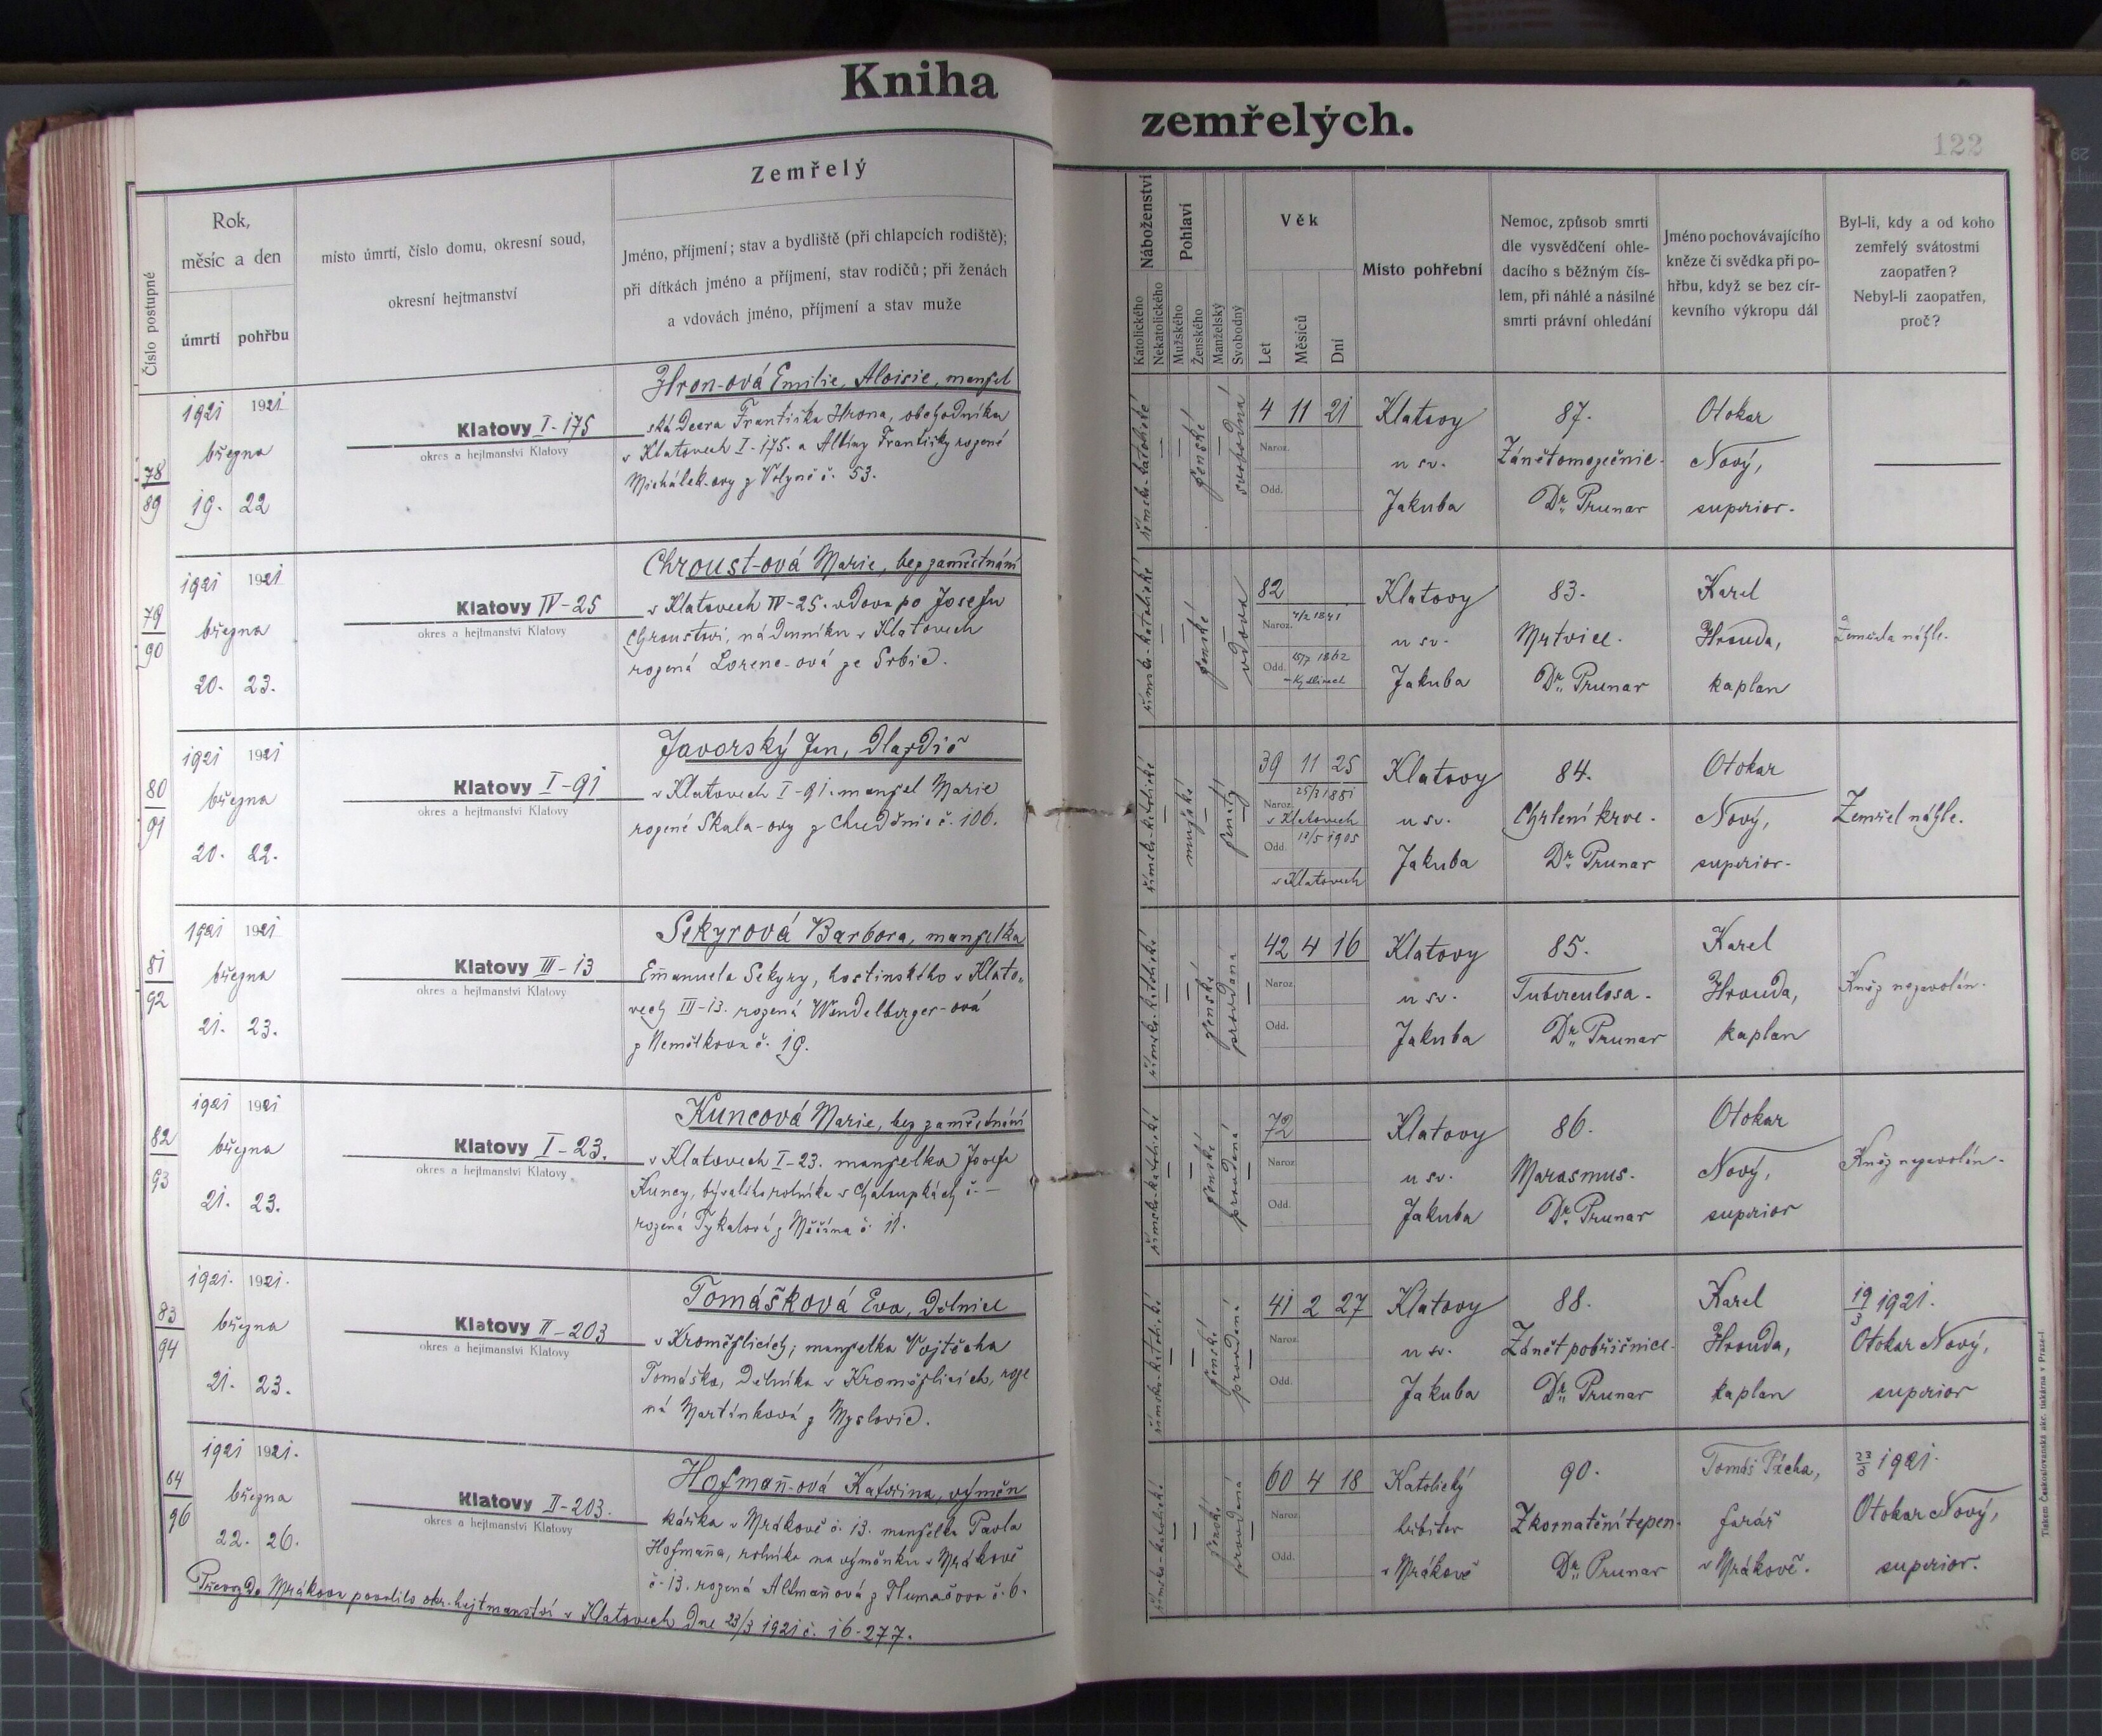 Kniha
zemřelých.
122
Číslo postupné
Rok,
měsíc a den
úmrtí
pohřbu
místo úmrtí, číslo domu, okresní soud,
okresní hejtmanství
Zemřelý
Jméno, příjmení; stav a bydliště (při chlapcích rodiště);
při dítkách jméno a příjmení, stav rodičů; při ženách
a vdovách jméno, příjmení a stav muže
Náboženství
Katolického
Nekatolického
Pohlaví
Mužského
Ženského
Manželský
Svobodný
Věk
Let
Měsíců
Dní
Místo pohřební
Nemoc, způsob smrti
dle vysvědčení ohle-
dacího s běžným čís-
lem, při náhlé a násilné
smrti právní ohledání
Jméno pochovávajícího
kněze či svědka při po-
hřbu, když se bez cír-
kevního výkropu dál
Byl-li, kdy a od koho
zemřelý svátostmi
zaopatřen?
Nebyl-li zaopatřen,
proč?
78
89
1921 1921
března
19. 22
Klatovy I-175
okres a hejtmanství Klatovy
Hron-ová Emilie, Aloisie, manžel
ská dcera Františka Hrona, obchodníka
v Klatovech I-175. a Albíny Františky rozené
Michálek-ovy z Volyně č. 53.
římsko-katolické
ženské
svobodná
4 11 21
Naroz.
Odd.
Klatovy
u sv.
Jakuba
87.
Zánět omozečnic.
Dr. Prunar
Otokar
Nový,
superior.
79
90
1921 1921
března
20. 23.
Klatovy IV-25
okres a hejtmanství Klatovy
Chroust-ová Marie, bez zaměstnání
v Klatovech IV-25. vdova po Josefu
Chroustovi, nádenníku v Klatovech
rozená Lorenc-ová ze Srbic.
římsko-katolické
ženské
vdova
82
Naroz.
Odd.
Klatovy
u sv.
Jakuba
83.
Mrtvice.
Dr. Prunar
Karel
Hrouda,
kaplan
Zemřela náhle.
80
91
1921 1921
března
20. 22.
Klatovy I-91
okres a hejtmanství Klatovy
Javorský Jan, dlaždič
v Klatovech I-91. manžel Marie
rozené Skala-ovy z Chuděnic č. 106.
římsko-katolické
mužské
ženatý
39 11 25
25/3 1881
Naroz.
v Klatovech
Odd. 13/5 1905
v Klatovech
Klatovy
u sv.
Jakuba
84.
Chrlení krve.
Dr. Prunar
Otokar
Nový,
superior.
Zemřel náhle.
81
92
1921 1921
března
21. 23.
Klatovy III-13
okres a hejtmanství Klatovy
Sekyrová Barbora, manželka
Emanuela Sekyry, hostinského v Klato-
vech III-13. rozená Wendelberger-ová
z Nemilkova č. 19.
římsko-katolické
ženské
provdaná
42 4 16
Naroz.
Odd.
Klatovy
u sv.
Jakuba
85.
Tuberculosa.
Dr. Prunar
Karel
Hrouda,
kaplan
Kněz nezavolán.
82
93
1921 1921
března
21. 23.
Klatovy I-23.
okres a hejtmanství Klatovy
Kuncová Marie, bez zaměstnání
v Klatovech I-23. manželka Josefa
Kuncy, bývalého rolníka v Chaloupkách č. —
rozená Tykalová z Měčína č. 11.
římsko-katolické
ženské
provdaná
72
Naroz.
Odd.
Klatovy
u sv.
Jakuba
86.
Marasmus.
Dr. Prunar
Otokar
Nový,
superior
Kněz nezavolán.
83
94
1921. 1921.
března
21. 23.
Klatovy II-203
okres a hejtmanství Klatovy
Tomášková Eva, dělnice
v Kroměžlicích; manželka Vojtěcha
Tomáška, dělníka v Kroměžlicích, roze
ná Martínková z Myslovic.
římsko-katolické
ženské
provdaná
41 2 27
Naroz.
Odd.
Klatovy
u sv.
Jakuba
88.
Zánět pobřišnice.
Dr. Prunar
Karel
Hrouda,
kaplan
19/3 1921.
Otokar Nový,
superior
84
96
1921 1921.
března
22. 26.
Klatovy II-203.
okres a hejtmanství Klatovy
Hofmann-ová Kateřina, výměn
kářka v Mrákově č. 13. manželka Pavla
Hofmanna, rolníka na výměnku v Mrákově
č. 13. rozená Altmannová z Tlumačova č. 6.
Převoz do Mrákova povolilo okr. hejtmanství v Klatovech dne 23/3 1921 č. 16-277.
římsko-katolické
ženské
provdaná
60 4 18
Naroz.
Odd.
Katolický
hřbitov
v Mrákově
90.
Zkornatění tepen.
Dr. Prunar
Tomáš Pácha,
farář
v Mrákově.
1921.
Otokar Nový,
superior.
Tiskem Českoslovanská akc. tiskárna v Praze-I